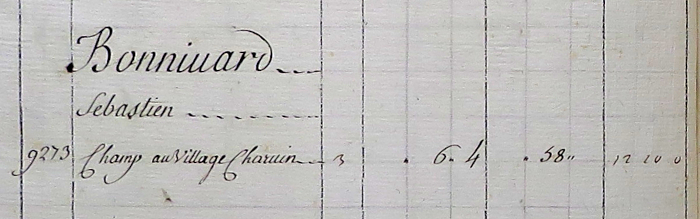 Bonniuard
Sebastien
9273 Champ au Village Charuin 3 . 6. 4 . 58" 12 10 0